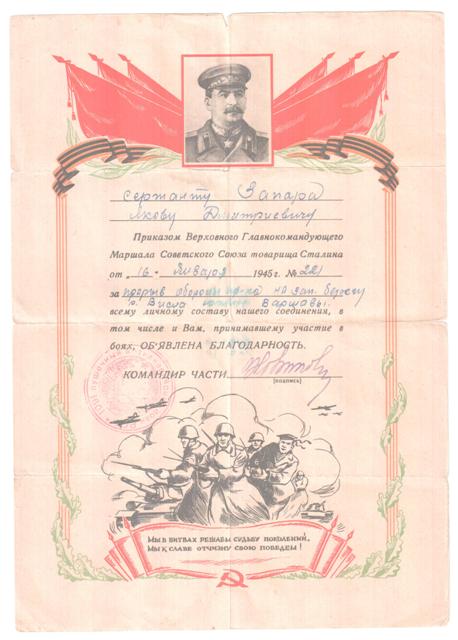 сержанту Запара
Якову Дмитриевичу
Приказом Верховного Главнокомандующего
Маршала Советского Союза товарища Сталина
от „16“ Января 1945 г. № 221
за прорыв обороны пр-ка на зап. берегу
р. Висла южнее Варшавы
всему личному составу нашего соединения, в
том числе и Вам, принимавшему участие в
боях, ОБ'ЯВЛЕНА БЛАГОДАРНОСТЬ.
КОМАНДИР ЧАСТИ
(подпись)
МЫ В БИТВАХ РЕШАЕМ СУДЬБУ ПОКОЛЕНИЙ,
МЫ К СЛАВЕ ОТЧИЗНУ СВОЮ ПОВЕДЕМ!